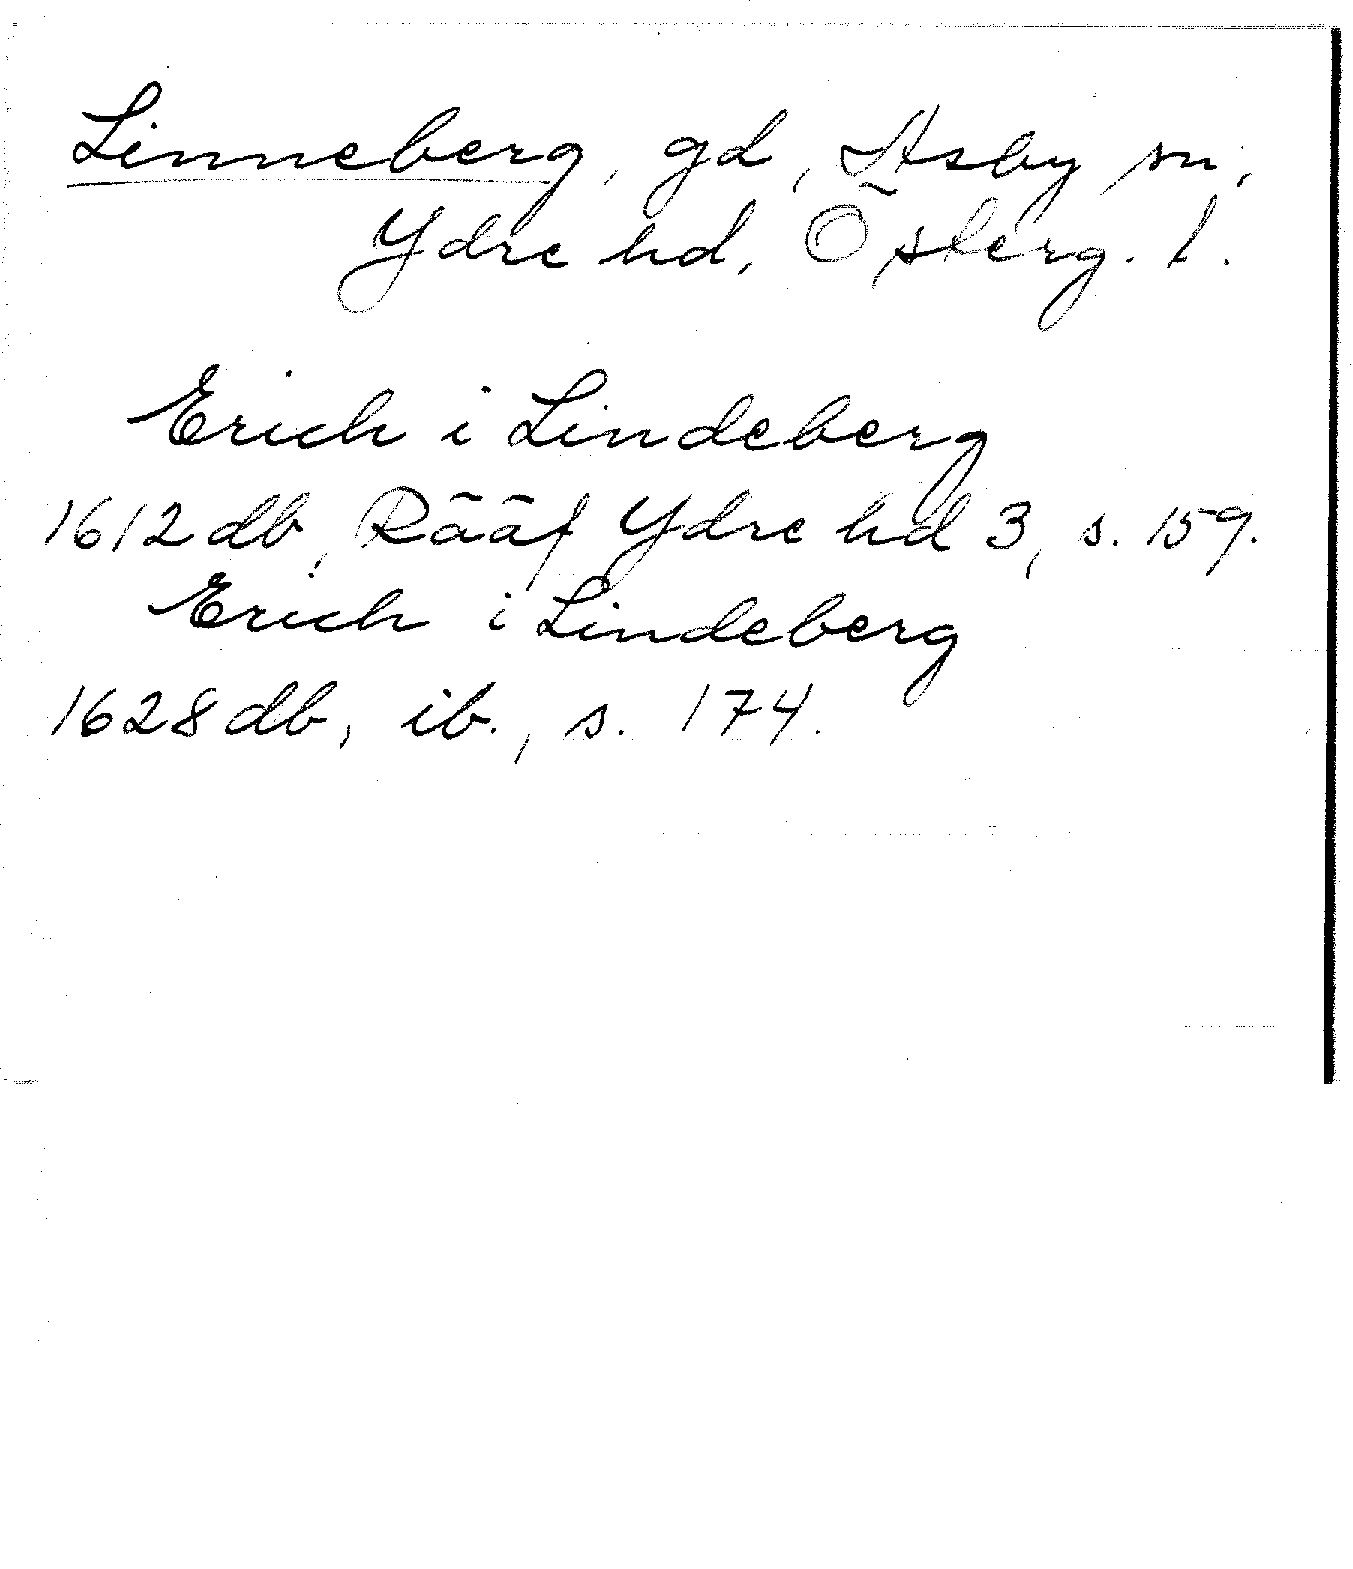 Linneberg, gd, Asby sn,
Ydre hd, Österg. l.
Erich i Lindeberg
1612 db, Rääf Ydre hd 3, s. 159.
Erich i Lindeberg
1628 db, ib., s. 174.